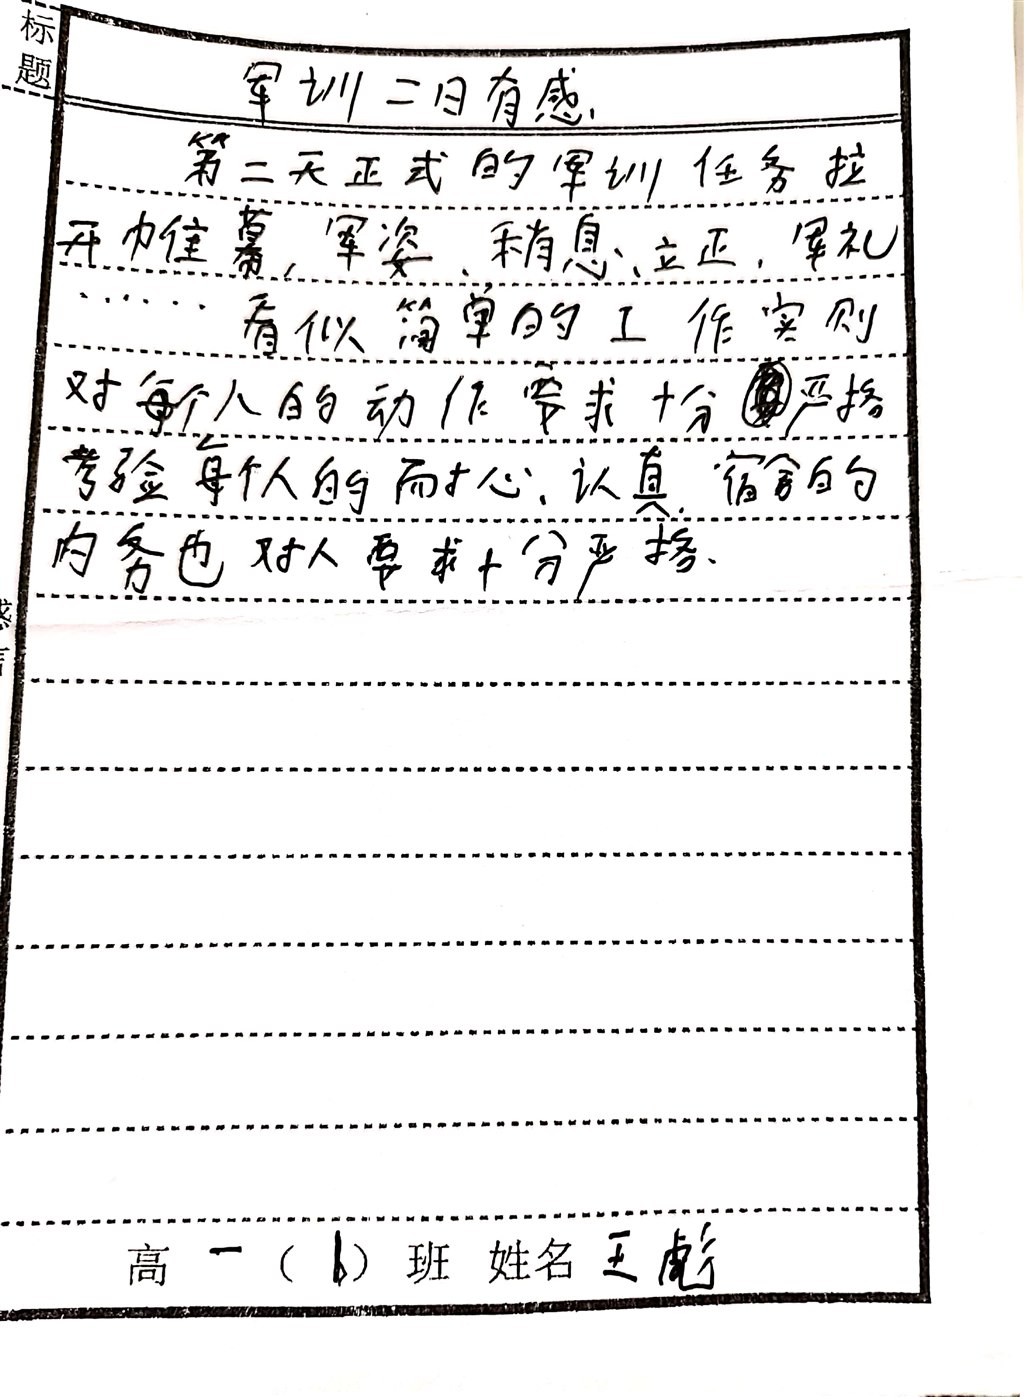 标题
军训二日有感.
第二天正式的军训任务拉
开帷幕,军姿、稍息、立正、军礼
……看似简单的工作实则
对每个人的动作要求十分严格
考验每个人的耐心、认真.宿舍的
内务也对人要求十分严格.
感言
高一(6)班 姓名王彪